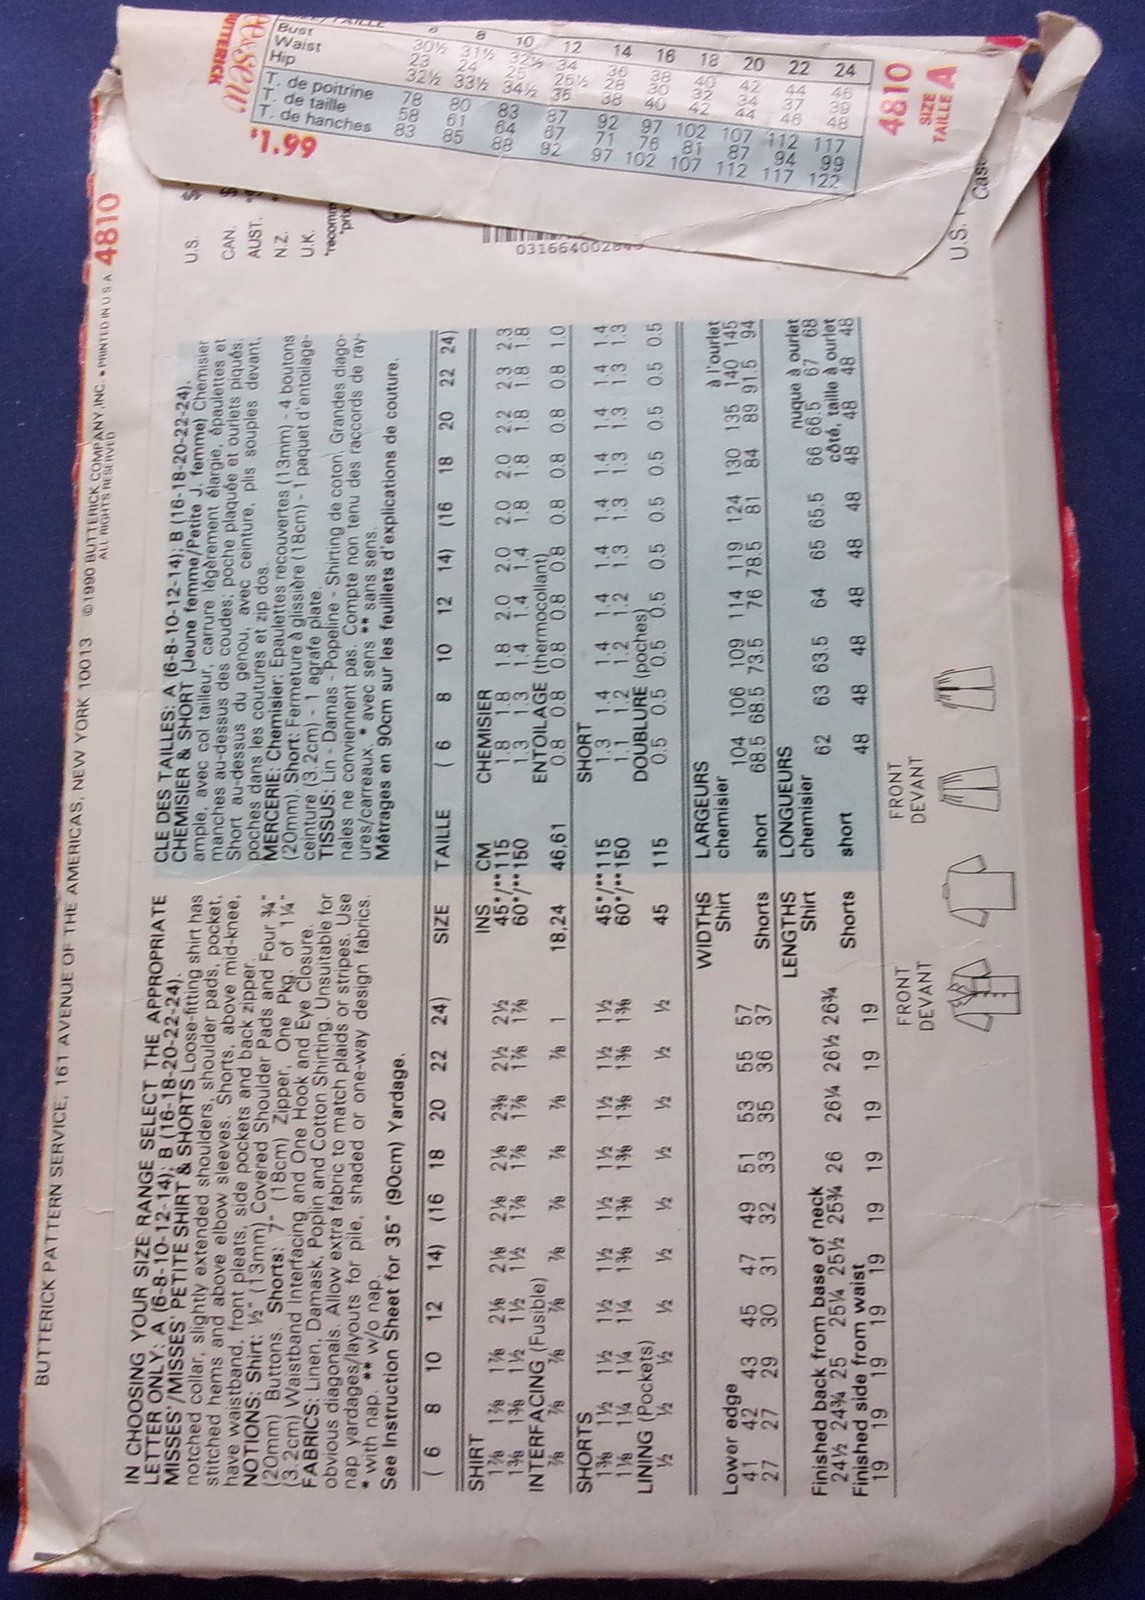 BUTTERICK PATTERN SERVICE, 161 AVENUE OF THE AMERICAS, NEW YORK 10013 ©1990 BUTTERICK COMPANY, INC. • PRINTED IN U S A 4810
ALL RIGHTS RESERVED
IN CHOOSING YOUR SIZE RANGE SELECT THE APPROPRIATE
LETTER ONLY: A (6-8-10-12-14); B (16-18-20-22-24).
MISSES'/MISSES' PETITE SHIRT & SHORTS Loose-fitting shirt has
notched collar, slightly extended shoulders, shoulder pads, pocket,
stitched hems and above elbow sleeves. Shorts, above mid-knee,
have waistband, front pleats, side pockets and back zipper.
NOTIONS: Shirt: ½" (13mm) Covered Shoulder Pads and Four ¾"
(20mm) Buttons. Shorts: 7" (18cm) Zipper, One Pkg. of 1¼"
(3.2cm) Waistband Interfacing and One Hook and Eye Closure.
FABRICS: Linen, Damask, Poplin and Cotton Shirting. Unsuitable for
obvious diagonals. Allow extra fabric to match plaids or stripes. Use
nap yardages/layouts for pile, shaded or one-way design fabrics.
* with nap. ** w/o nap.
See Instruction Sheet for 35" (90cm) Yardage.
CLE DES TAILLES: A (6-8-10-12-14); B (16-18-20-22-24).
CHEMISIER & SHORT (Jeune femme/Petite J. femme) Chemisier
ample, avec col tailleur, carrure légèrement élargie, épaulettes et
manches au-dessus des coudes; poche plaquée et ourlets piqués.
Short au-dessus du genou, avec ceinture, plis souples devant,
poches dans les coutures et zip dos.
MERCERIE: Chemisier: Epaulettes recouvertes (13mm) - 4 boutons
(20mm). Short: Fermeture à glissière (18cm) - 1 paquet d'entoilage-
ceinture (3.2cm) - 1 agrafe plate.
TISSUS: Lin - Damas - Popeline - Shirting de coton. Grandes diago-
nales ne conviennent pas. Compte non tenu des raccords de ray-
ures/carreaux. * avec sens ** sans sens.
Métrages en 90cm sur les feuillets d'explications de couture.
( 6 8 10 12 14) (16 18 20 22 24) SIZE TAILLE ( 6 8 10 12 14) (16 18 20 22 24)
SHIRT INS CM CHEMISIER
1⅞ 1⅞ 1⅞ 2⅛ 2⅛ 2⅛ 2⅛ 2⅜ 2½ 2½ 45*/**115 1.8 1.8 1.8 2.0 2.0 2.0 2.0 2.2 2.3 2.3
1⅜ 1⅜ 1½ 1½ 1½ 1⅞ 1⅞ 1⅞ 1⅞ 1⅞ 60*/**150 1.3 1.3 1.4 1.4 1.4 1.8 1.8 1.8 1.8 1.8
INTERFACING (Fusible) ENTOILAGE (thermocollant)
⅞ ⅞ ⅞ ⅞ ⅞ ⅞ ⅞ ⅞ ⅞ 1 18,24 46,61 0.8 0.8 0.8 0.8 0.8 0.8 0.8 0.8 0.8 1.0
SHORTS SHORT
1⅜ 1½ 1½ 1½ 1½ 1½ 1½ 1½ 1½ 1½ 45*/**115 1.3 1.4 1.4 1.4 1.4 1.4 1.4 1.4 1.4 1.4
1⅛ 1¼ 1¼ 1¼ 1⅜ 1⅜ 1⅜ 1⅜ 1⅜ 1⅜ 60*/**150 1.1 1.2 1.2 1.2 1.3 1.3 1.3 1.3 1.3 1.3
LINING (Pockets) DOUBLURE (poches)
½ ½ ½ ½ ½ ½ ½ ½ ½ ½ 45 115 0.5 0.5 0.5 0.5 0.5 0.5 0.5 0.5 0.5 0.5
WIDTHS LARGEURS
Lower edge Shirt chemisier à l'ourlet
41 42 43 45 47 49 51 53 55 57 104 106 109 114 119 124 130 135 140 145
27 27 29 30 31 32 33 35 36 37 Shorts short 68.5 68.5 73.5 76 78.5 81 84 89 91.5 94
LENGTHS LONGUEURS
Finished back from base of neck Shirt chemisier nuque à ourlet
24½ 24¾ 25 25¼ 25½ 25¾ 26 26¼ 26½ 26¾ 62 63 63.5 64 65 65.5 66 66.5 67 68
Finished side from waist Shorts short côté, taille à ourlet
19 19 19 19 19 19 19 19 19 19 48 48 48 48 48 48 48 48 48 48
FRONT
DEVANT
FRONT
DEVANT
U.S. $
CAN. $
AUST.
N.Z.
U.K.
*recomm
*prix
U.S.
Cas
BUTTERICK
$1.99
8 10 12 14 16 18 20 22 24
Bust 30½ 31½ 32½ 34 36 38 40 42 44 46
Waist 23 24 25 26½ 28 30 32 34 37 39
Hip 32½ 33½ 34½ 36 38 40 42 44 46 48
T. de poitrine 78 80 83 87 92 97 102 107 112 117
T. de taille 58 61 64 67 71 76 81 87 94 99
T. de hanches 83 85 88 92 97 102 107 112 117 122
4810
SIZE
TAILLE A